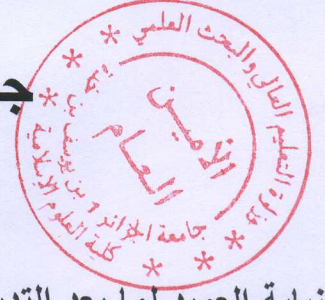 وزارة التعليم العالي والبحث العلمي
جامعة الجزائر 1 بن يوسف بن خدة
كلية العلوم الإسلامية
الأمين
العام